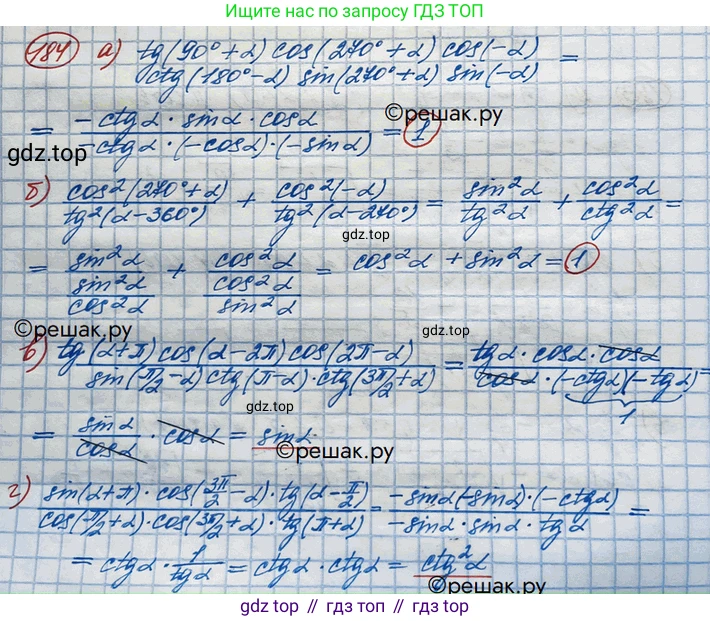 Ищите нас в интернете по запросу ГДЗ ТОП
184 а) tg(90°+α) cos(270°+α) cos(-α) / ctg(180°-α) sin(270°+α) sin(-α) =
= -ctgα · sinα · cosα / -ctgα · (-cosα) · (-sinα) = 1
©решак.ру
gdz.top
б) cos²(270°+α) / tg²(α-360°) + cos²(-α) / tg²(α-270°) = sin²α / tg²α + cos²α / ctg²α =
gdz.top
= sin²α / (sin²α / cos²α) + cos²α / (cos²α / sin²α) = cos²α + sin²α = 1
©решак.ру
gdz.top
в) tg(α+π) cos(α-2π) cos(2π-α) / sin(π/2-α) ctg(π-α) · ctg(3π/2+α) = tgα · cosα · cosα / cosα · (-ctgα)(-tgα) =
1
gdz.top
= sinα / cosα · cosα = sinα
©решак.ру
г) sin(α+π) · cos(3π/2-α) · tg(α-π/2) / cos(π/2+α) · cos(3π/2+α) · tg(π+α) = -sinα(-sinα) · (-ctgα) / -sinα · sinα · tgα =
= ctgα · 1/tgα = ctgα · ctgα = ctg²α
©решак.ру
gdz.top // гдз топ // gdz.top // гдз.топ